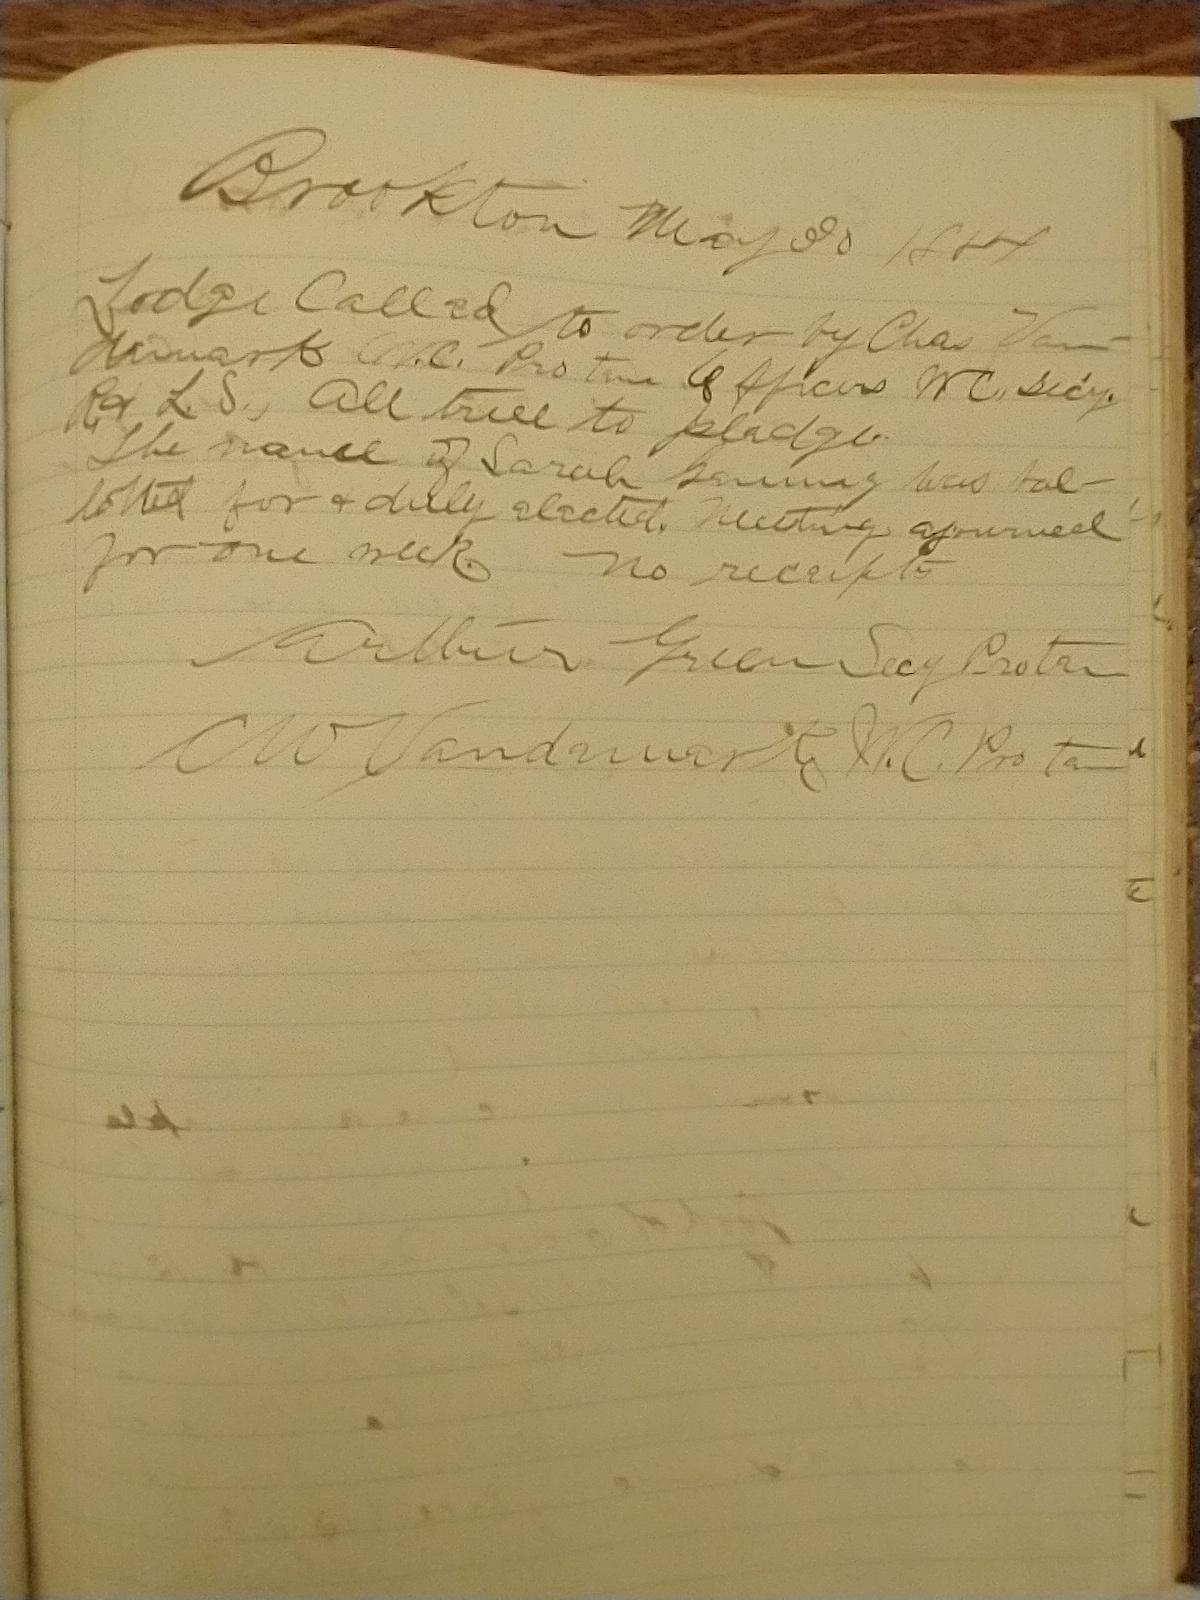 Brookton May 20 1884
Lodge Called to order by Chas Van-
demark W.C. Pro tem Officers W.C. Secy.
R & L.S., All true to pledge.
The name of Sarah was bal-
lotted for & duly elected. Meeting ajourned
for one week. No receipts
Arthur Green Secy Protem
CW Vandemark W.C. Pro tem